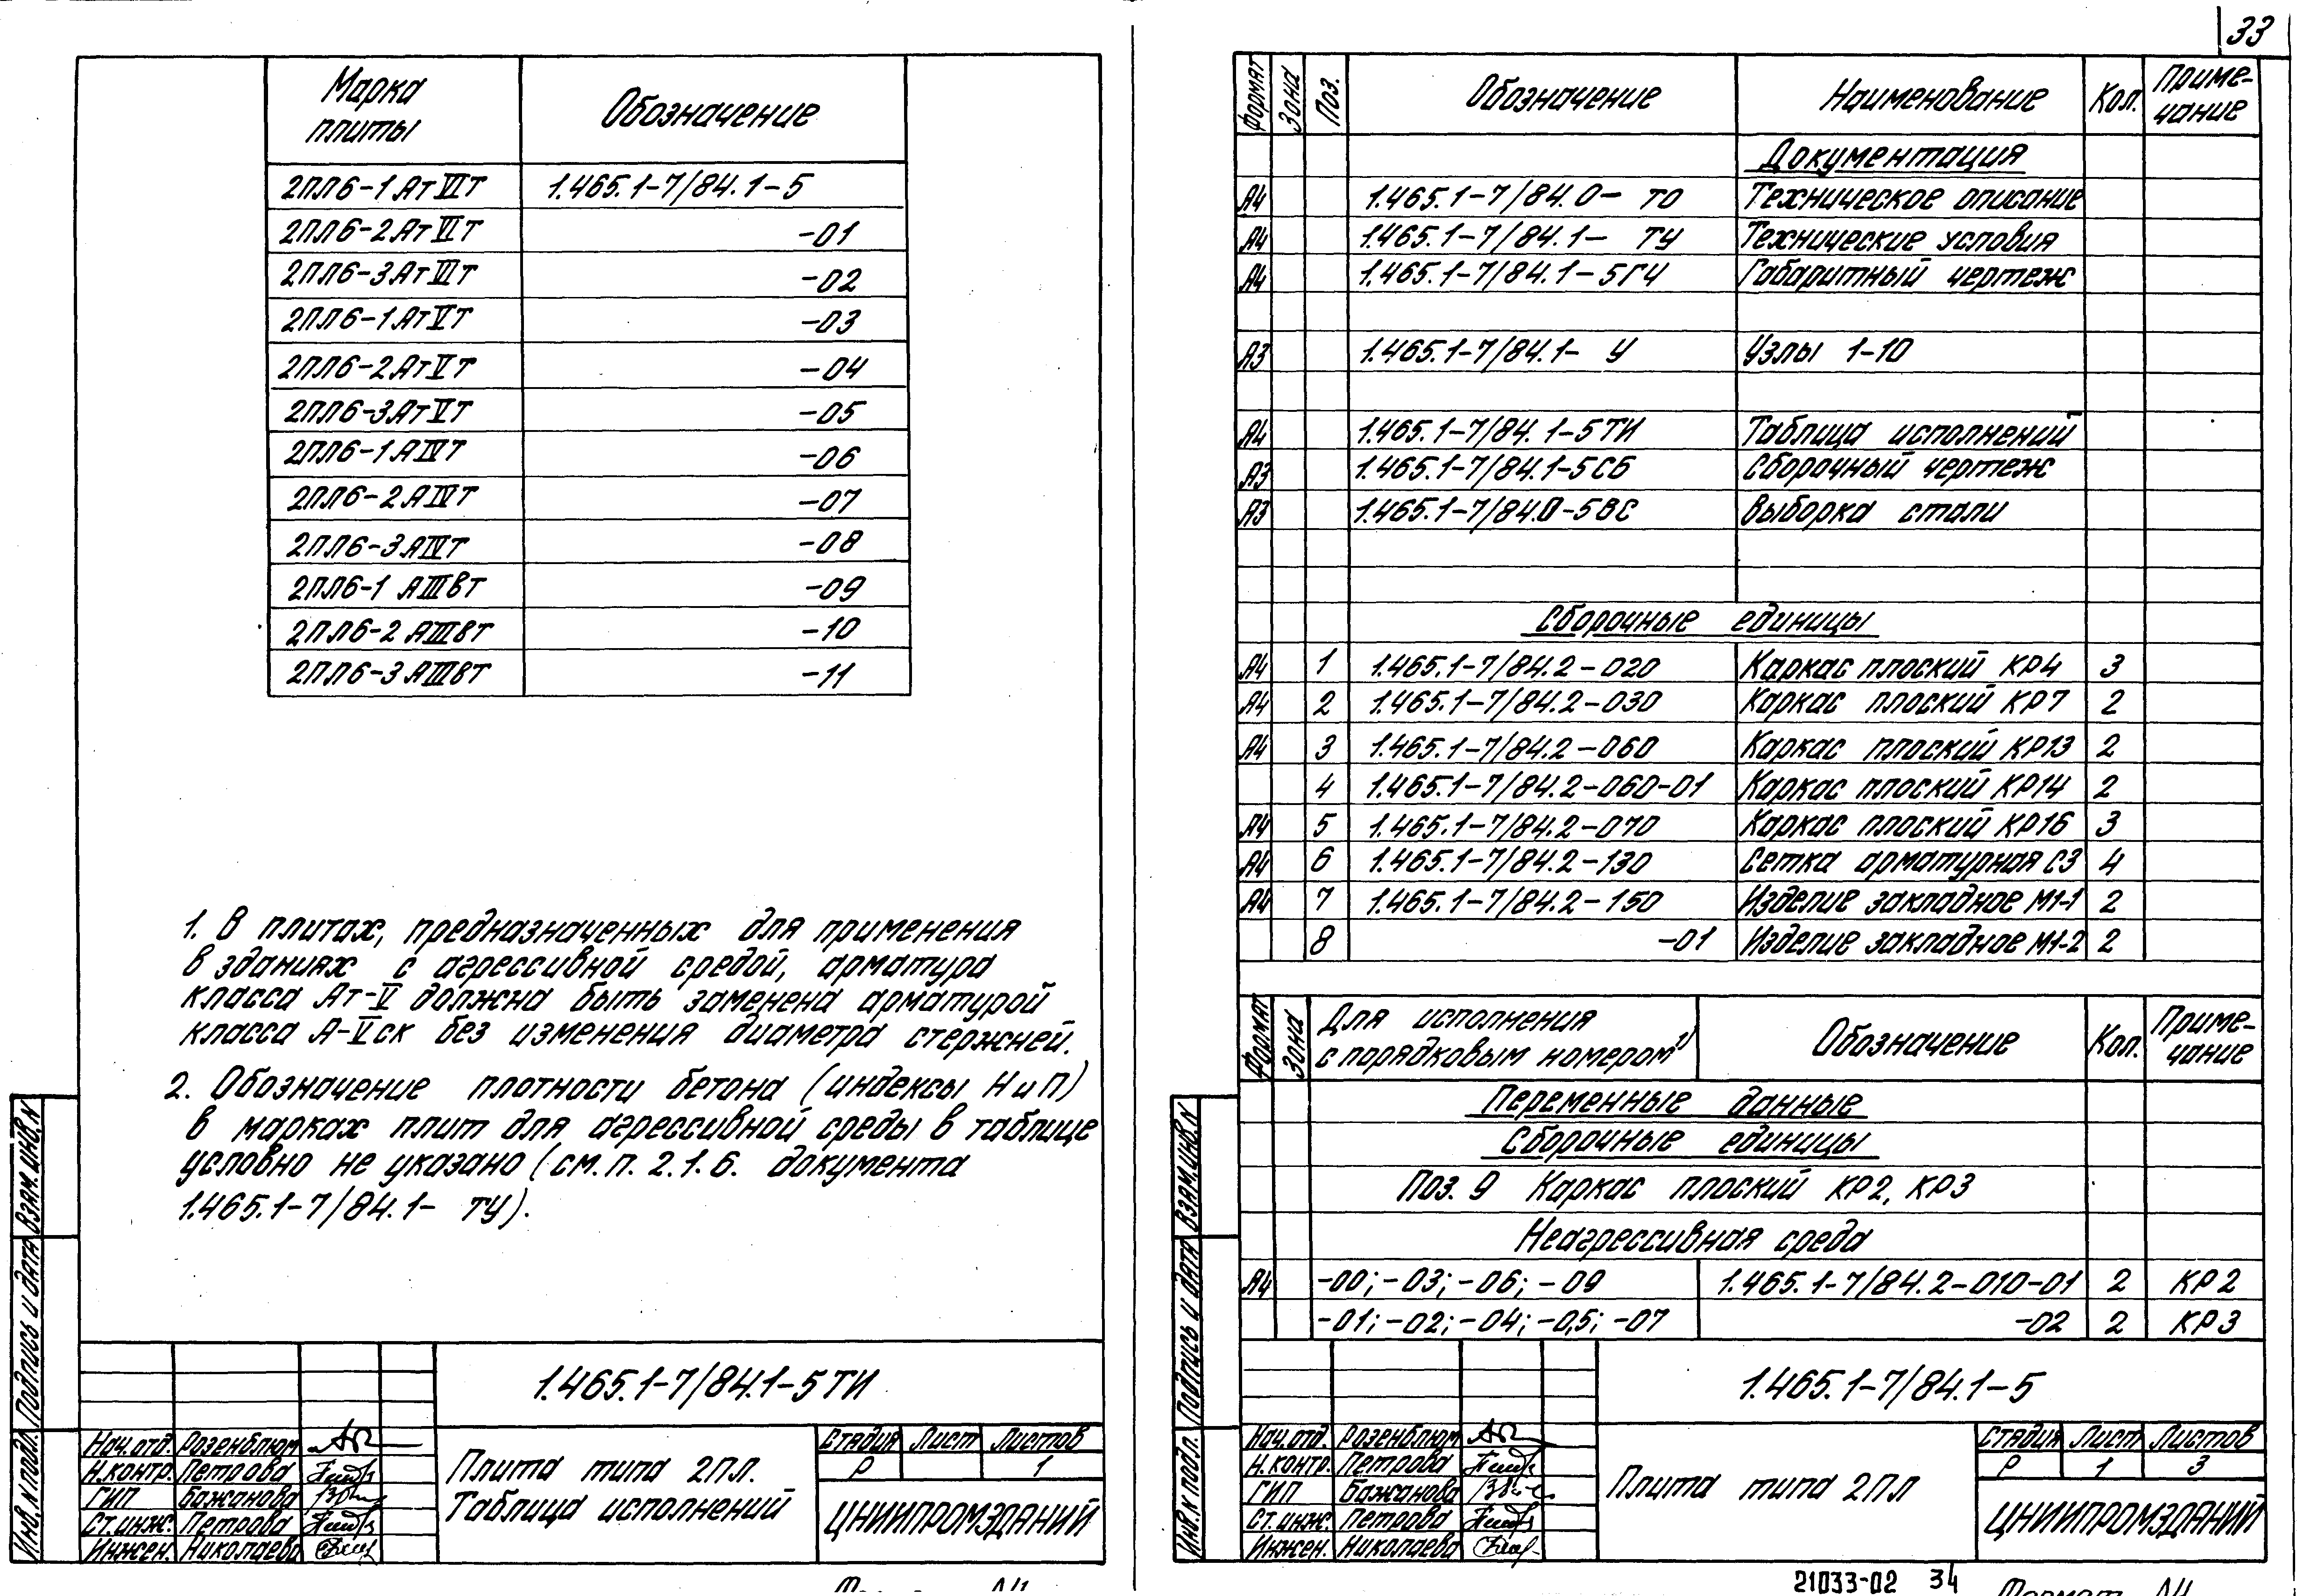 33
Марка плиты | Обозначение
2ПЛ6-1АтVIТ | 1.465.1-7/84.1-5
2ПЛ6-2АтVIТ | -01
2ПЛ6-3АтVIТ | -02
2ПЛ6-1АтVТ | -03
2ПЛ6-2АтVТ | -04
2ПЛ6-3АтVТ | -05
2ПЛ6-1АIVТ | -06
2ПЛ6-2АIVТ | -07
2ПЛ6-3АIVТ | -08
2ПЛ6-1 АIIIвТ | -09
2ПЛ6-2 АIIIвТ | -10
2ПЛ6-3 АIIIвТ | -11
1. В плитах, предназначенных для применения
в зданиях с агрессивной средой, арматура
класса Ат-V должна быть заменена арматурой
класса А-Vск без изменения диаметра стержней.
2. Обозначение плотности бетона (индексы Н и П)
в марках плит для агрессивной среды в таблице
условно не указано (см. п. 2.1.6. документа
1.465.1-7/84.1- ТУ).
Взам.инв.N
Подпись и дата
Инв.N подл.
1.465.1-7/84.1-5ТИ
Нач.отд. Розенблюм
Н.контр. Петрова
ГИП Бажанова
Ст.инж. Петрова
Инжен. Николаева
Плита типа 2ПЛ.
Таблица исполнений
Стадия | Лист | Листов
Р | | 1
ЦНИИПРОМЗДАНИЙ
Формат | Зона | Поз. | Обозначение | Наименование | Кол. | Приме-чание
Документация
А4 | 1.465.1-7/84.0- ТО | Техническое описание
А4 | 1.465.1-7/84.1- ТУ | Технические условия
А4 | 1.465.1-7/84.1-5ГЧ | Габаритный чертеж
А3 | 1.465.1-7/84.1- У | Узлы 1-10
А4 | 1.465.1-7/84.1-5ТИ | Таблица исполнений
А3 | 1.465.1-7/84.1-5СБ | Сборочный чертеж
А3 | 1.465.1-7/84.0-5ВС | Выборка стали
Сборочные единицы
А4 | 1 | 1.465.1-7/84.2-020 | Каркас плоский КР4 | 3
А4 | 2 | 1.465.1-7/84.2-030 | Каркас плоский КР7 | 2
А4 | 3 | 1.465.1-7/84.2-060 | Каркас плоский КР13 | 2
4 | 1.465.1-7/84.2-060-01 | Каркас плоский КР14 | 2
А4 | 5 | 1.465.1-7/84.2-070 | Каркас плоский КР16 | 3
А4 | 6 | 1.465.1-7/84.2-130 | Сетка арматурная С3 | 4
А4 | 7 | 1.465.1-7/84.2-150 | Изделие закладное М1-1 | 2
8 | -01 | Изделие закладное М1-2 | 2
Формат | Зона | Для исполнения с порядковым номером¹⁾ | Обозначение | Кол. | Приме-чание
Переменные данные
Сборочные единицы
Поз. 9 Каркас плоский КР2, КР3
Неагрессивная среда
А4 | -00; -03; -06; -09 | 1.465.1-7/84.2-010-01 | 2 | КР2
-01; -02; -04; -0,5; -07 | -02 | 2 | КР3
Взам.инв.N
Подпись и дата
Инв.N подл.
1.465.1-7/84.1-5
Нач.отд. Розенблюм
Н.контр. Петрова
ГИП Бажанова
Ст.инж. Петрова
Инжен. Николаева
Плита типа 2ПЛ
Стадия | Лист | Листов
Р | 1 | 3
ЦНИИПРОМЗДАНИЙ
21033-02 34
Формат А4